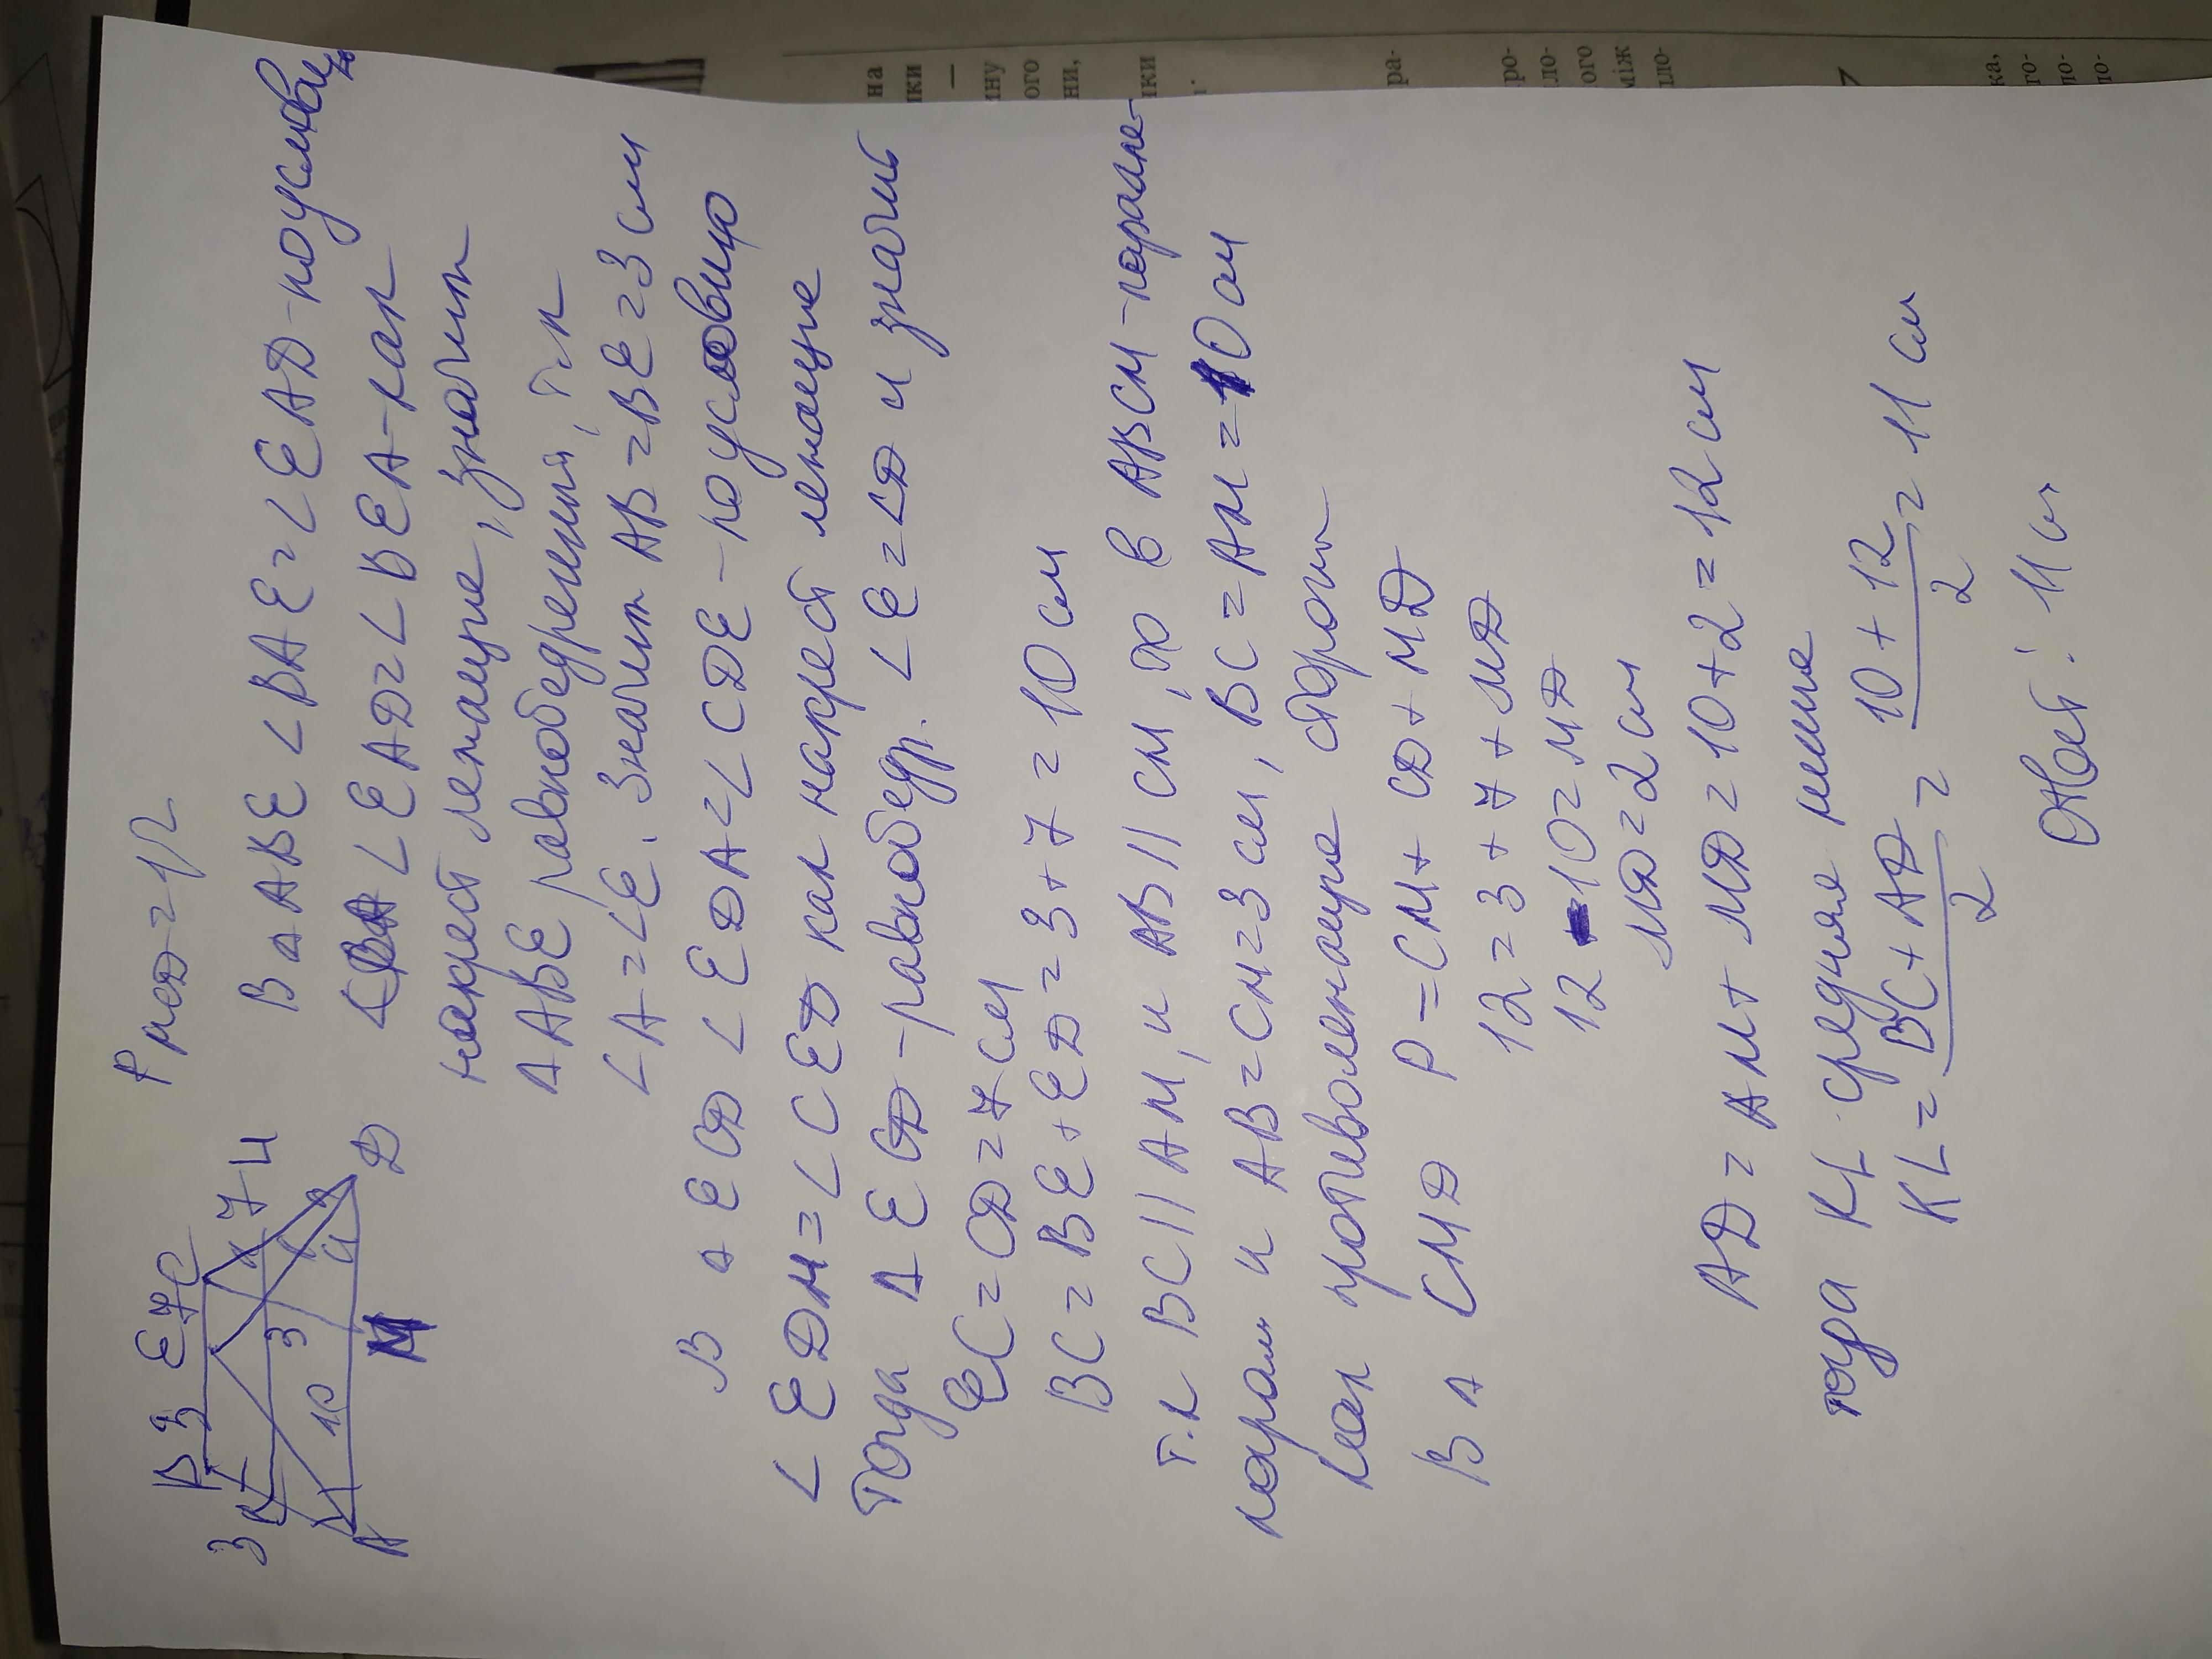 B 3 E 7 C
3 K
3
7 L
10
A M D
P MCD = 12
В △ ABE ∠BAE = ∠EAD - по условию
∠EAD = ∠BEA - как
накрест лежащие, значит
△ABE равнобедренный, т.к
∠A = ∠E. Значит AB = BE = 3 см
В △ ECD ∠EDA = ∠CDE - по условию
∠EDM = ∠CED как накрест лежащие
Тогда △ ECD - равнобедр. ∠E = ∠D и значит
EC = CD = 7 см
BC = BE + ED = 3 + 7 = 10 см
т.к BC || AM, и AB || CM, то в ABCM - паралле-
лограм и AB = CM = 3 см, BC = AM = 10 см
как противолежащие сторон
В △ CMD P = CM + CD + MD
12 = 3 + 7 + MD
12 - 10 = MD
MD = 2 см
AD = AM + MD = 10 + 2 = 12 см
тогда KL средняя линия
KL = BC + AD / 2 = 10 + 12 / 2 = 11 см
Ответ: 11 см
на
ики
—
ину
ого
ни,
ики
ра-
ро-
ло-
ого
між
ло-
ка,
го-
ло-
ло-